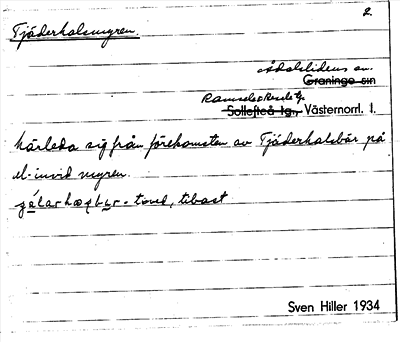 2.
Tjäderhalsmyren.
Ådalslidens sn.
Graninge sn
Ramsele & Resele tg.
Sollefteå tg., Västernorrl. l.
härleda sig från förekomsten av Tjäderhalsbär på
el. invid myren.
- tovel, tibast
Sven Hiller 1934